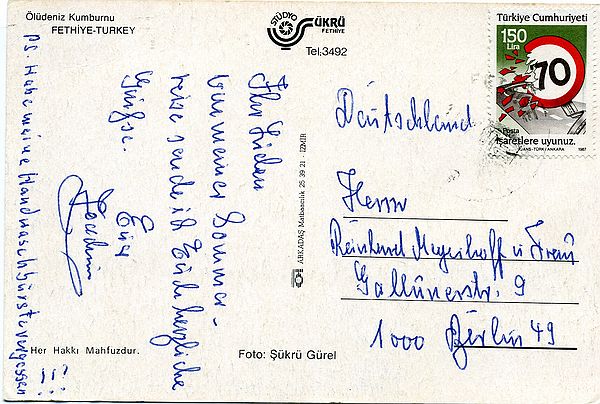 Ölüdeniz Kumburnu
FETHİYE-TURKEY
STÜDYO
ŞÜKRÜ
FETHİYE
Tel.3492
Türkiye Cumhuriyeti
150
Lira
70
Posta
işaretlere uyunuz.
AJANS-TÜRK/ANKARA 1987
Ihr Lieben
von meiner Sommer-
reise sende ich Euch herzliche
Grüße.
Euer
Joachim
P.S. Habe meine Handwaschbürste vergessen
!!!
ARKADAŞ Matbaacılık 25 39 21 - İZMİR
Deutschland
Herrn
Reinhard Meyerhoff u. Frau
Gallünerstr. 9
1000 Berlin 49
Her Hakkı Mahfuzdur.
Foto: Şükrü Gürel